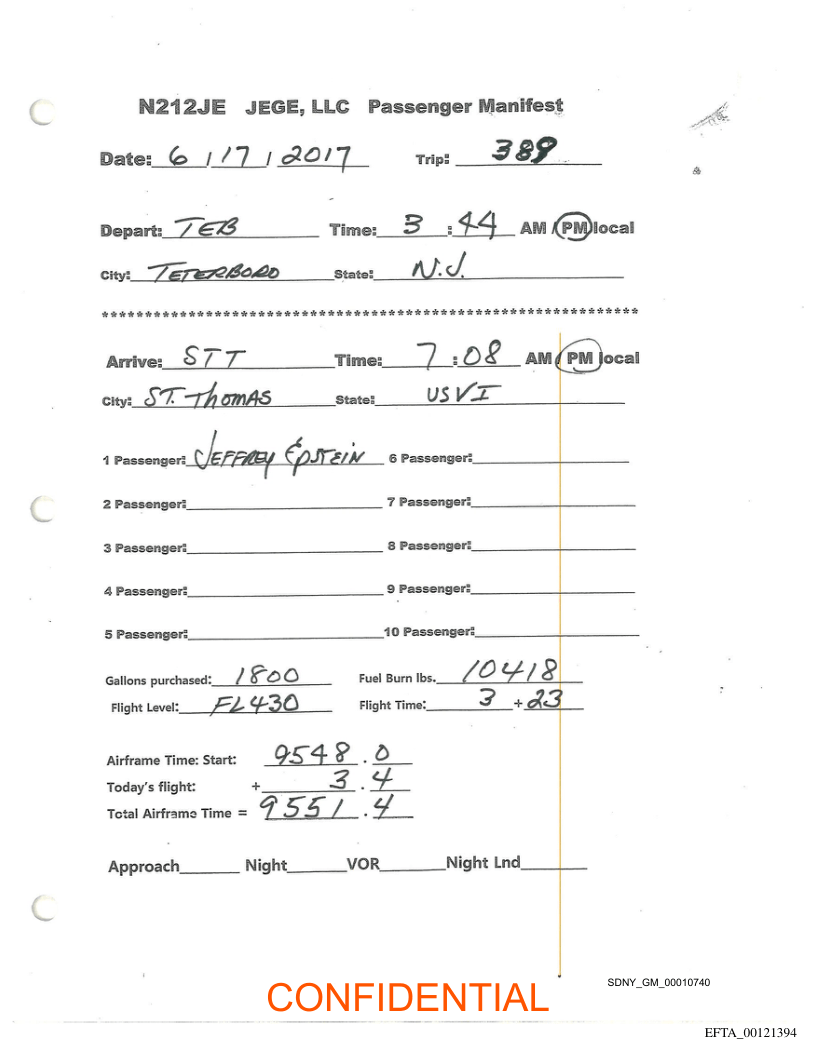 N212JE JEGE, LLC Passenger Manifest
Date: 6 / 17 / 2017 Trip: 389
Depart: TEB Time: 3 : 44 AM / PM local
City: TETERBORO State: N.J.
****************************************************************
Arrive: STT Time: 7 : 08 AM / PM local
City: ST. Thomas State: USVI
1 Passenger: JEFFREY EPSTEIN 6 Passenger:
2 Passenger: 7 Passenger:
3 Passenger: 8 Passenger:
4 Passenger: 9 Passenger:
5 Passenger: 10 Passenger:
Gallons purchased: 1800 Fuel Burn lbs. 10418
Flight Level: FL430 Flight Time: 3 + 23
Airframe Time: Start: 9548 . 0
Today's flight: + 3 . 4
Total Airframe Time = 9551 . 4
Approach Night VOR Night Lnd
SDNY_GM_00010740
CONFIDENTIAL
EFTA_00121394